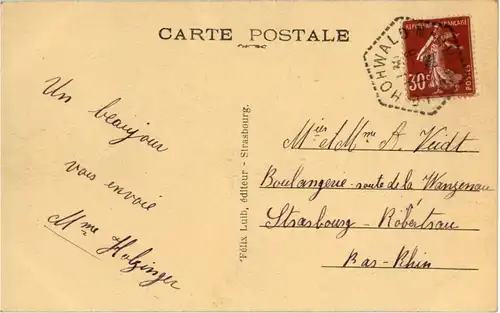 CARTE POSTALE
HOHWALD
REPUBLIQUE FRANÇAISE
30c
POSTES
Un beaujour
vous envoie
Mme Holzinger
Félix Luib, éditeur - Strasbourg.
Mr et Mme A. Veidt
Boulangerie - route de la Wanzenau
Strasbourg - Robertsau
Bas-Rhin